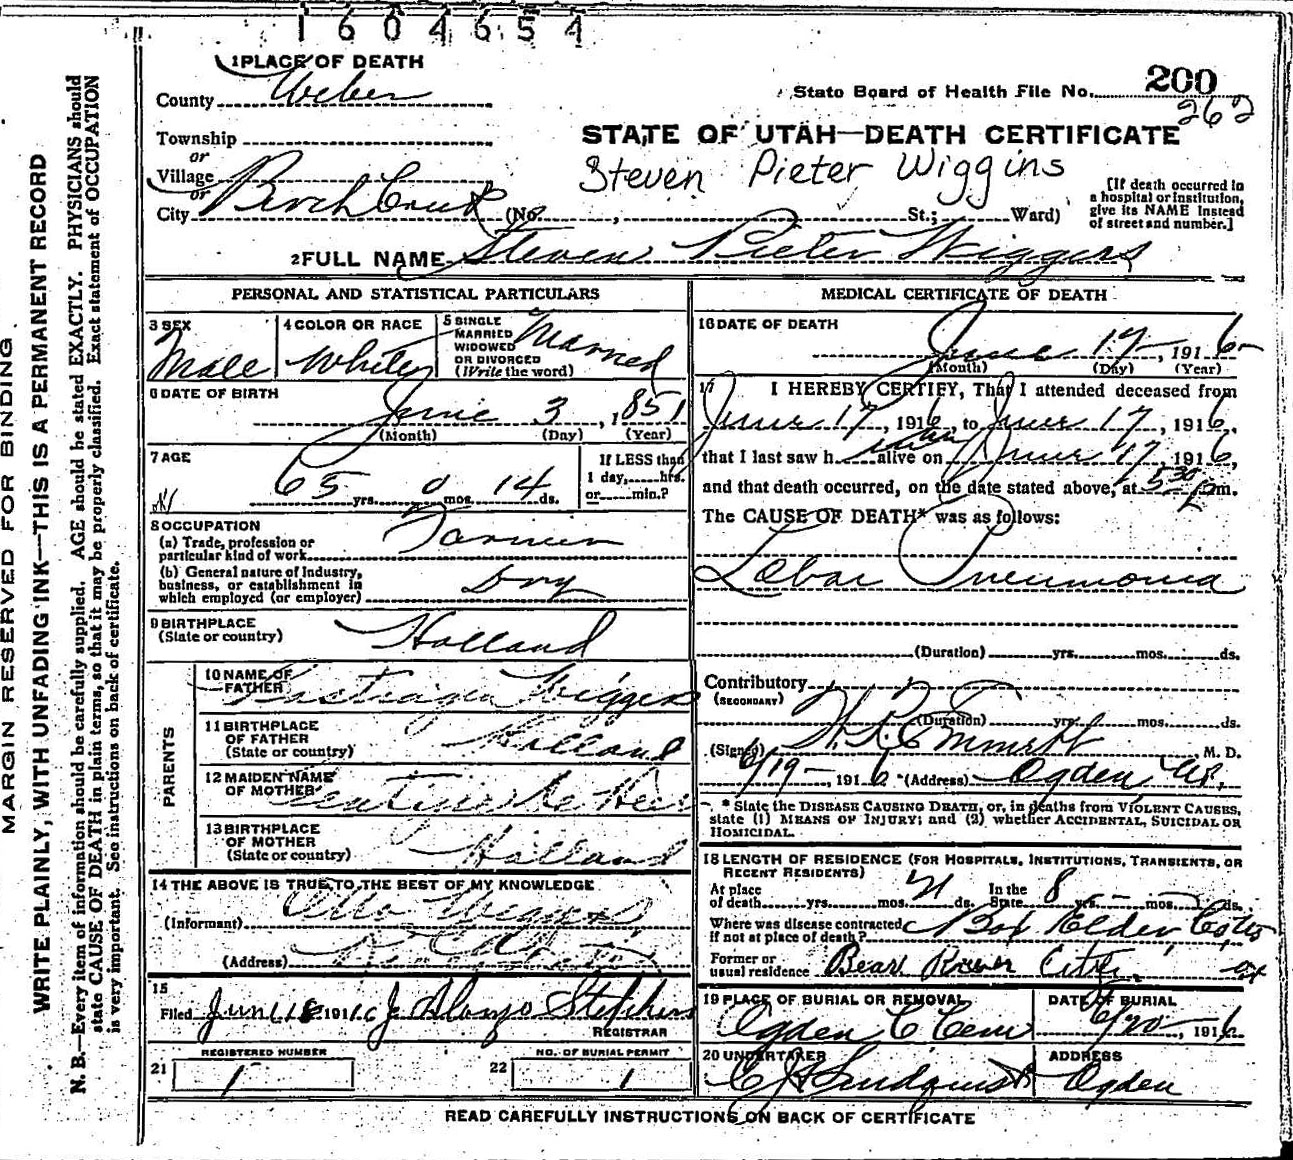 1604654
1 PLACE OF DEATH
County Weber
State Board of Health File No. 200
262
Township
or
Village
or
City Birch Creek (No. , St.; Ward)
STATE OF UTAH—DEATH CERTIFICATE
Steven Pieter Wiggins
[If death occurred in
a hospital or institution,
give its NAME instead
of street and number.]
2 FULL NAME Steven Pieter Wiggers
PERSONAL AND STATISTICAL PARTICULARS
3 SEX
Male
4 COLOR OR RACE
White
5 SINGLE
MARRIED
WIDOWED
OR DIVORCED
(Write the word)
Married
6 DATE OF BIRTH
June 3, 1851
(Month) (Day) (Year)
7 AGE
65 yrs. 0 mos. 14 ds.
If LESS than
1 day, hrs.
or min.?
8 OCCUPATION
(a) Trade, profession or
particular kind of work
Farmer
(b) General nature of Industry,
business, or establishment in
which employed (or employer)
Dry
9 BIRTHPLACE
(State or country)
Holland
PARENTS
10 NAME OF
FATHER
Wiggers
11 BIRTHPLACE
OF FATHER
(State or country)
Holland
12 MAIDEN NAME
OF MOTHER
13 BIRTHPLACE
OF MOTHER
(State or country)
Holland
14 THE ABOVE IS TRUE TO THE BEST OF MY KNOWLEDGE
(Informant) Wiggers
(Address)
15
Filed Jun 18 1916 J Alonzo Stephens
REGISTRAR
REGISTERED NUMBER
21 1
NO. OF BURIAL PERMIT
22 1
MEDICAL CERTIFICATE OF DEATH
16 DATE OF DEATH
June 17, 1916
(Month) (Day) (Year)
17 I HEREBY CERTIFY, That I attended deceased from
June 17, 1916, to June 17, 1916,
that I last saw h im alive on June 17, 1916,
and that death occurred, on the date stated above, at 5 30 P m.
The CAUSE OF DEATH* was as follows:
Lobar Pneumonia
(Duration) yrs. mos. ds.
Contributory
(SECONDARY)
(Duration) yrs. mos. ds.
(Signed) Emmett M. D.
6/19 – 1916 (Address) Ogden Ut.
* State the DISEASE CAUSING DEATH, or, in deaths from VIOLENT CAUSES,
state (1) MEANS OF INJURY; and (2) whether ACCIDENTAL, SUICIDAL OR
HOMICIDAL.
18 LENGTH OF RESIDENCE (FOR HOSPITALS, INSTITUTIONS, TRANSIENTS, OR
RECENT RESIDENTS)
At place
of death yrs. mos. ds. In the
State 8 yrs. – mos. ds.
Where was disease contracted
if not at place of death? Box Elder Co
Former or
usual residence Bear River City
19 PLACE OF BURIAL OR REMOVAL
Ogden C Cem
DATE OF BURIAL
6/20, 1916
20 UNDERTAKER
ADDRESS
Ogden
READ CAREFULLY INSTRUCTIONS ON BACK OF CERTIFICATE
MARGIN RESERVED FOR BINDING
WRITE PLAINLY, WITH UNFADING INK—THIS IS A PERMANENT RECORD
N. B.—Every item of information should be carefully supplied. AGE should be stated EXACTLY. PHYSICIANS should
state CAUSE OF DEATH in plain terms, so that it may be properly classified. Exact statement of OCCUPATION
is very important. See instructions on back of certificate.